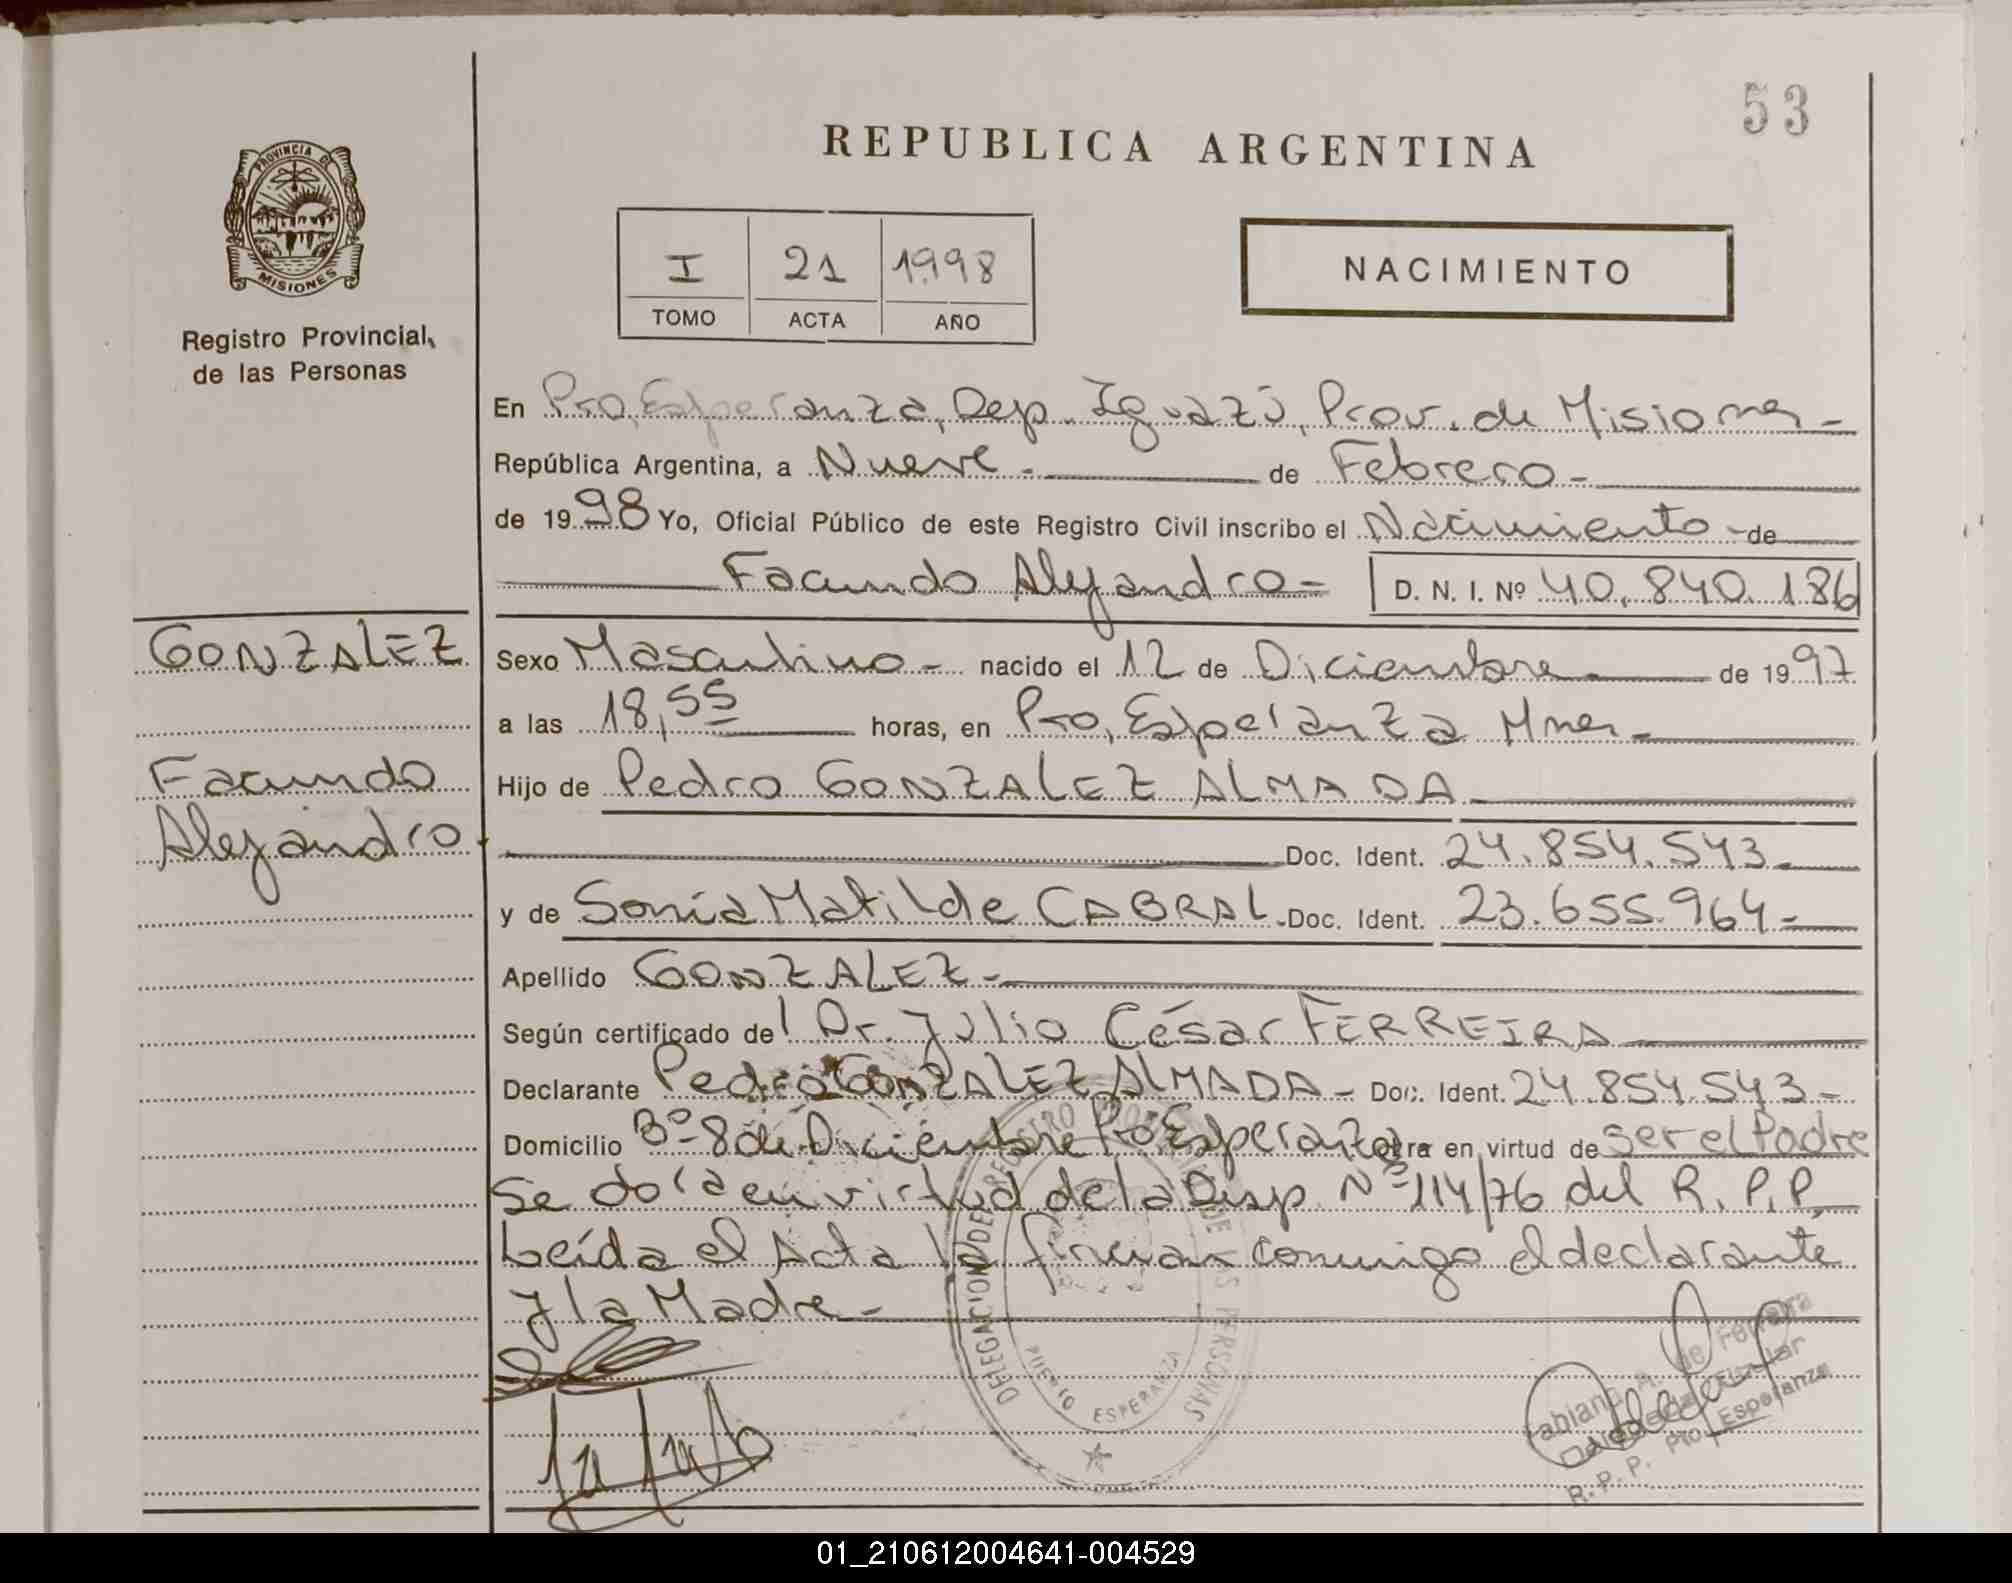 53
REPUBLICA ARGENTINA
PROVINCIA DE
MISIONES
Registro Provincial
de las Personas
I 21 1998
TOMO ACTA AÑO
NACIMIENTO
En Pto, Esperanza, Dep. Iguazú, Prov. de Misiones -
República Argentina, a Nueve - de Febrero -
de 1998 Yo, Oficial Público de este Registro Civil inscribo el Nacimiento - de
Facundo Alejandro = D. N. I. Nº 40.840.186
GONZALEZ
Facundo
Alejandro
Sexo Masculino - nacido el 12 de Diciembre de 1997
a las 18,55 horas, en Pto, Esperanza Mnes -
Hijo de Pedro GONZALEZ ALMADA
Doc. Ident. 24.854.543 -
y de Sonia Matilde CABRAL - Doc. Ident. 23.655.964 =
Apellido GONZALEZ -
Según certificado del Dr. Julio César FERREIRA
Declarante Pedro GONZALEZ ALMADA - Doc. Ident. 24.854.543 -
Domicilio Bº - 8 de Diciembre Pto Esperanza obra en virtud de ser el Padre
Se do la en virtud de la Disp. Nº 114/76 del R. P. P.
Leída el Acta la firman conmigo el declarante
y la Madre -
DELEGACION DEL REGISTRO PROVINCIAL DE LAS PERSONAS
PUERTO ESPERANZA
Fabiana A. de Ferreira
Delegada Titular
R. P. P. Pto. Esperanza
01_210612004641-004529